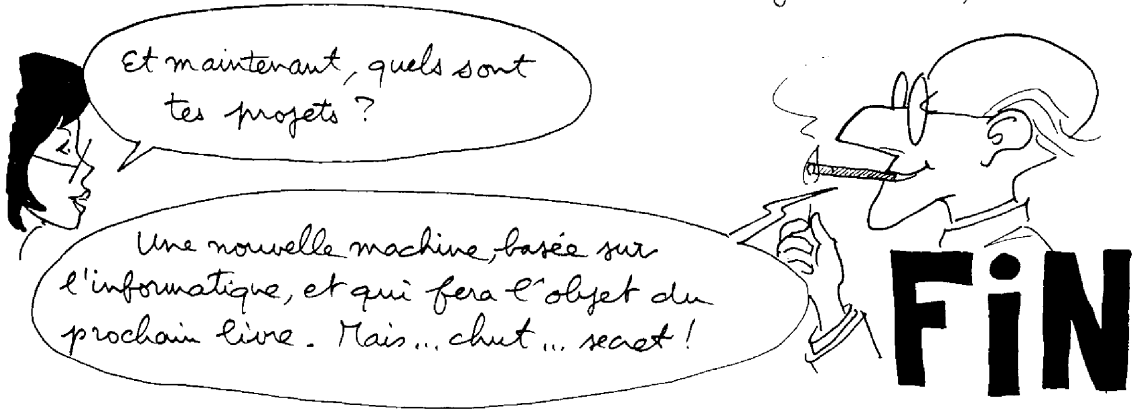 Et maintenant, quels sont
tes projets ?
Une nouvelle machine, basée sur
l'informatique, et qui fera l'objet du
prochain livre. Mais... chut... secret !
FiN